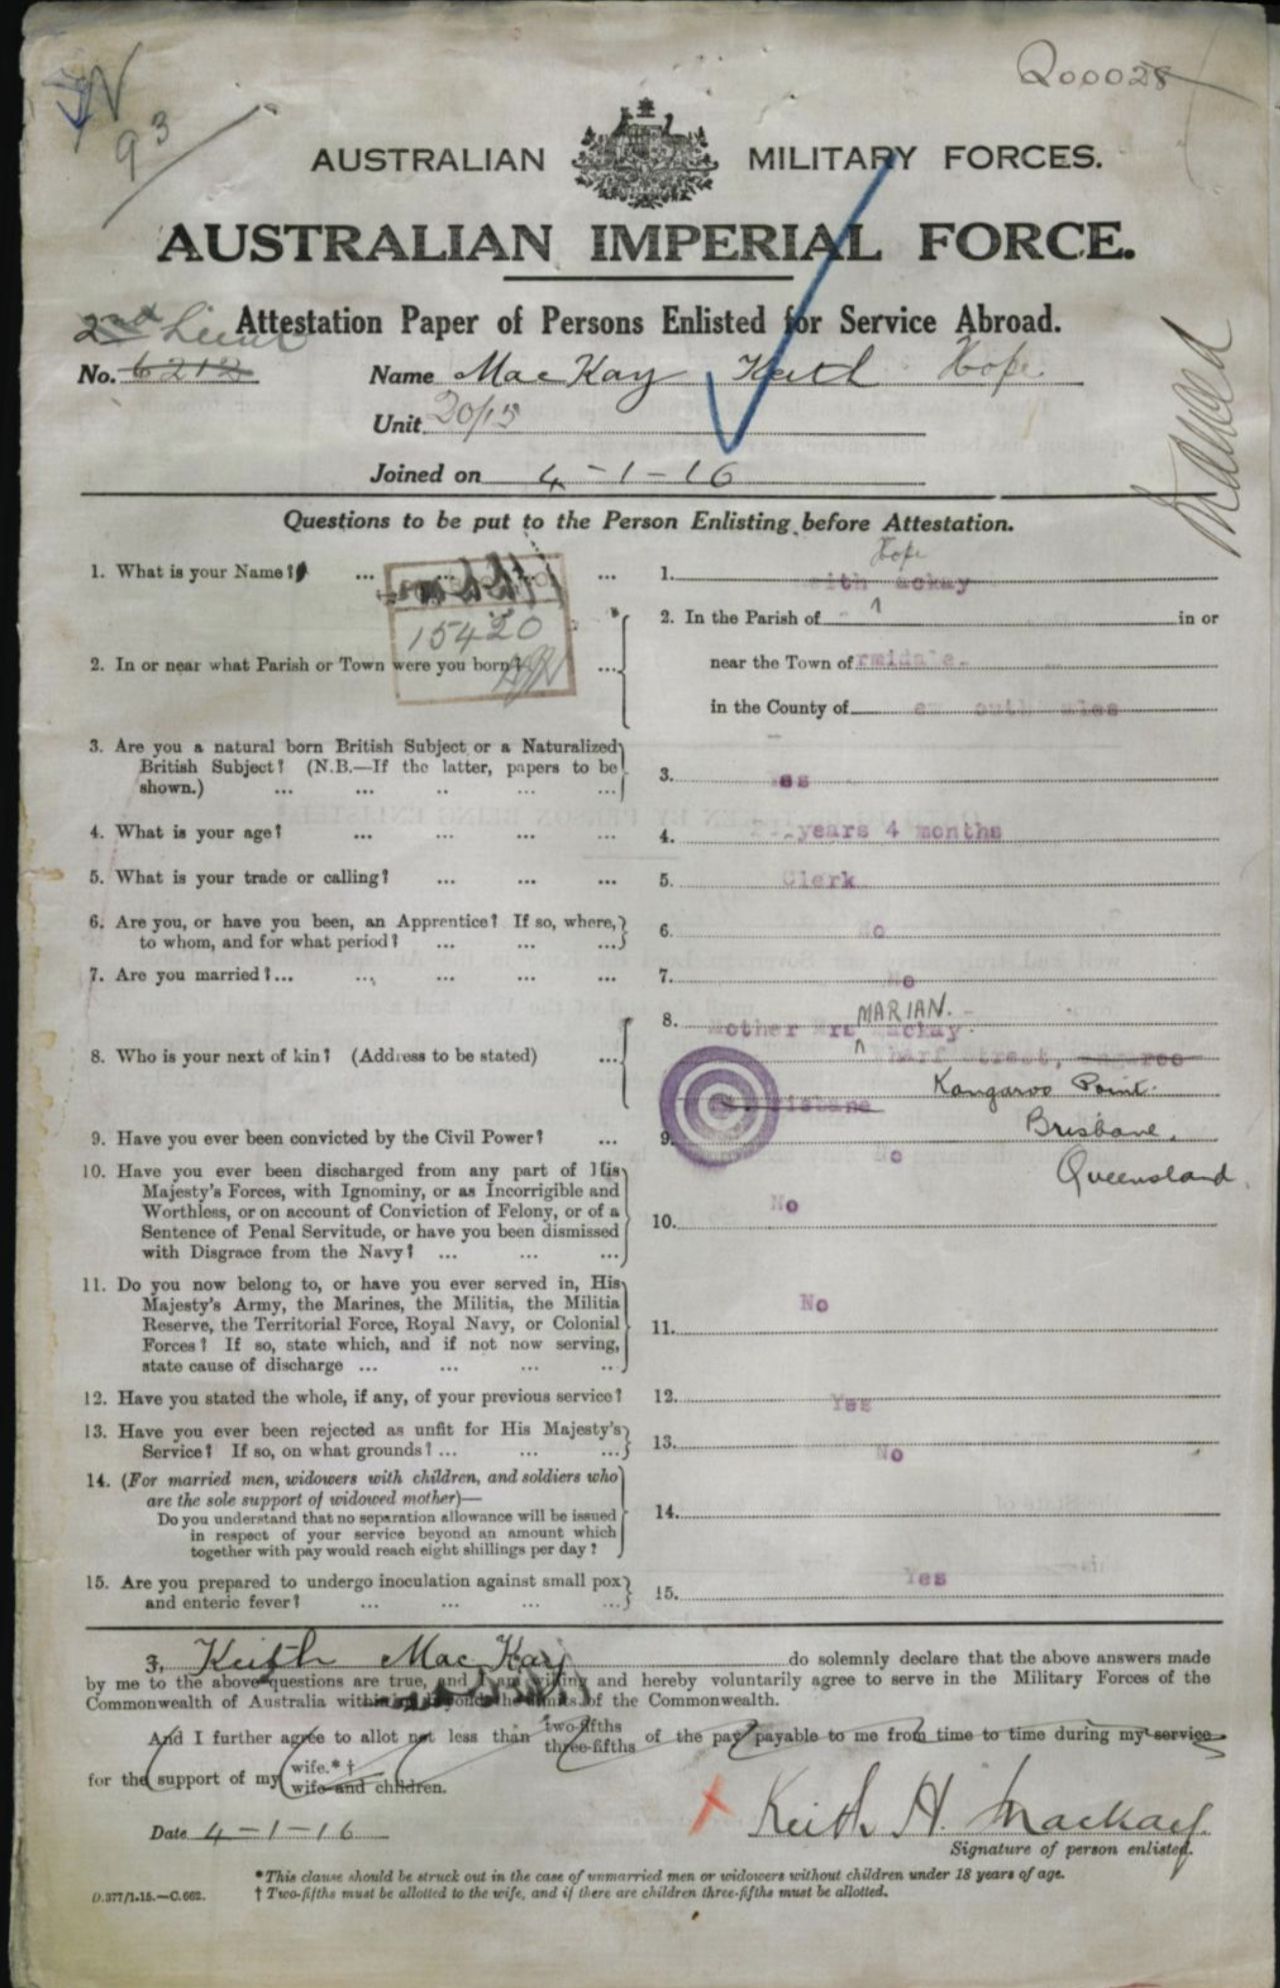 Q00028
93
AUSTRALIAN MILITARY FORCES.
AUSTRALIAN IMPERIAL FORCE.
2nd Lieut
Attestation Paper of Persons Enlisted for Service Abroad.
No. 6212 Name MacKay Keith Hope
Unit 20/15
Joined on 4-1-16
Questions to be put to the Person Enlisting before Attestation.
Hope
1. What is your Name? ... ... ... 1. eith ackay
15420
2. In the Parish of in or
2. In or near what Parish or Town were you born? ... near the Town of rmidale.
in the County of ew outh ales
3. Are you a natural born British Subject or a Naturalized
British Subject? (N.B.—If the latter, papers to be
shown.) ... ... .. ... ... 3. es
4. What is your age? ... ... ... ... 4. years 4 months
5. What is your trade or calling? ... ... ... 5. Clerk
6. Are you, or have you been, an Apprentice? If so, where,
to whom, and for what period? ... ... ... 6. No
7. Are you married?... ... ... ... ... 7. No
MARIAN.
8. Mother Mrs ackay.
8. Who is your next of kin? (Address to be stated) ... harf street, angaroo
isbane Kangaroo Point.
9. Have you ever been convicted by the Civil Power? ... 9. No
Brisbane,
Queensland
10. Have you ever been discharged from any part of His
Majesty's Forces, with Ignominy, or as Incorrigible and
Worthless, or on account of Conviction of Felony, or of a
Sentence of Penal Servitude, or have you been dismissed
with Disgrace from the Navy? ... ... ... 10. No
11. Do you now belong to, or have you ever served in, His
Majesty's Army, the Marines, the Militia, the Militia
Reserve, the Territorial Force, Royal Navy, or Colonial
Forces? If so, state which, and if not now serving,
state cause of discharge ... ... ... .. 11. No
12. Have you stated the whole, if any, of your previous service? 12. Yes
13. Have you ever been rejected as unfit for His Majesty's
Service? If so, on what grounds? ... ... ... 13. No
14. (For married men, widowers with children, and soldiers who
are the sole support of widowed mother)—
Do you understand that no separation allowance will be issued
in respect of your service beyond an amount which
together with pay would reach eight shillings per day? 14.
15. Are you prepared to undergo inoculation against small pox
and enteric fever? ... ... ... ... 15. Yes
I, Keith MacKay do solemnly declare that the above answers made
by me to the above questions are true, and I am willing and hereby voluntarily agree to serve in the Military Forces of the
Commonwealth of Australia within or beyond the limits of the Commonwealth.
And I further agree to allot not less than two-fifths three-fifths of the pay payable to me from time to time during my service
for the support of my wife.*† wife and children.
Date 4-1-16 Keith H. Mackay
Signature of person enlisted.
*This clause should be struck out in the case of unmarried men or widowers without children under 18 years of age.
† Two-fifths must be allotted to the wife, and if there are children three-fifths must be allotted.
D.377/1.15.—C.662.